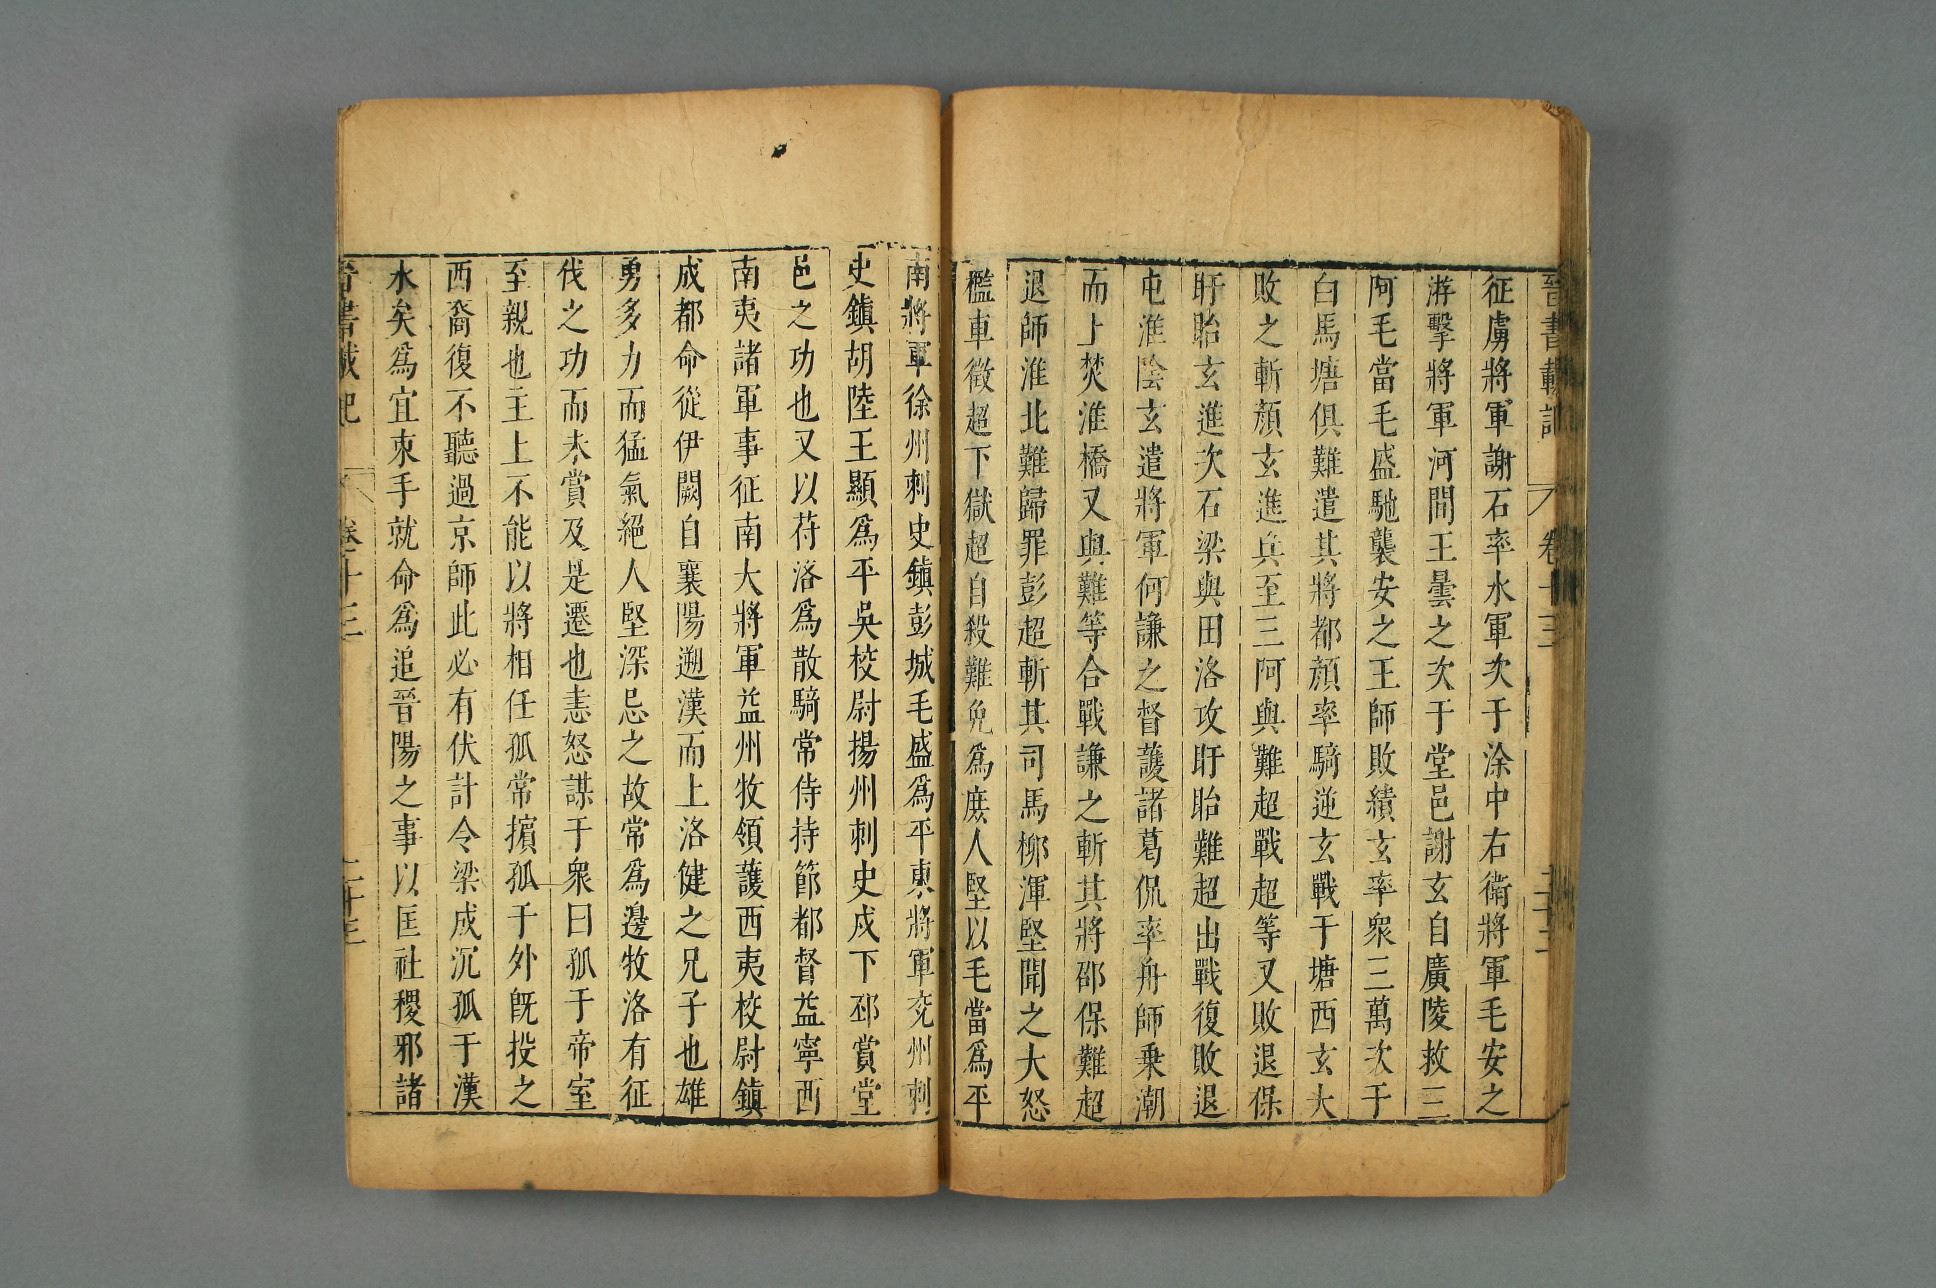 晉書載記 卷十三 二十三
征虜將軍謝石率水軍次于涂中右衛將軍毛安之
游擊將軍河間王曇之次于堂邑謝玄自廣陵救三
阿毛當毛盛馳襲安之王師敗績玄率衆三萬次于
白馬塘俱難遣其將都顏率騎逆玄戰于塘西玄大
敗之斬顏玄進兵至三阿與難超戰超等又敗退保
盱眙玄進次石梁與田洛攻盱眙難超出戰復敗退
屯淮陰玄遣將軍何謙之督護諸葛侃率舟師乘潮
而上焚淮橋又與難等合戰謙之斬其將邵保難超
退師淮北難歸罪彭超斬其司馬柳渾堅聞之大怒
檻車徵超下獄超自殺難免爲庶人堅以毛當爲平
南將軍徐州刺史鎮彭城毛盛爲平東將軍兖州刺
史鎮胡陸王顯爲平吳校尉揚州刺史戍下邳賞堂
邑之功也又以苻洛爲散騎常侍持節都督益寧西
南夷諸軍事征南大將軍益州牧領護西夷校尉鎮
成都命從伊闕自襄陽遡漢而上洛健之兄子也雄
勇多力而猛氣絕人堅深忌之故常爲邊牧洛有征
伐之功而未賞及是遷也恚怒謀于衆曰孤于帝室
至親也主上不能以將相任孤常擯孤于外既投之
西裔復不聽過京師此必有伏計令梁成沉孤于漢
水矣爲宜束手就命爲追晉陽之事以匡社稷邪諸
晉書載記 卷十三 二十三